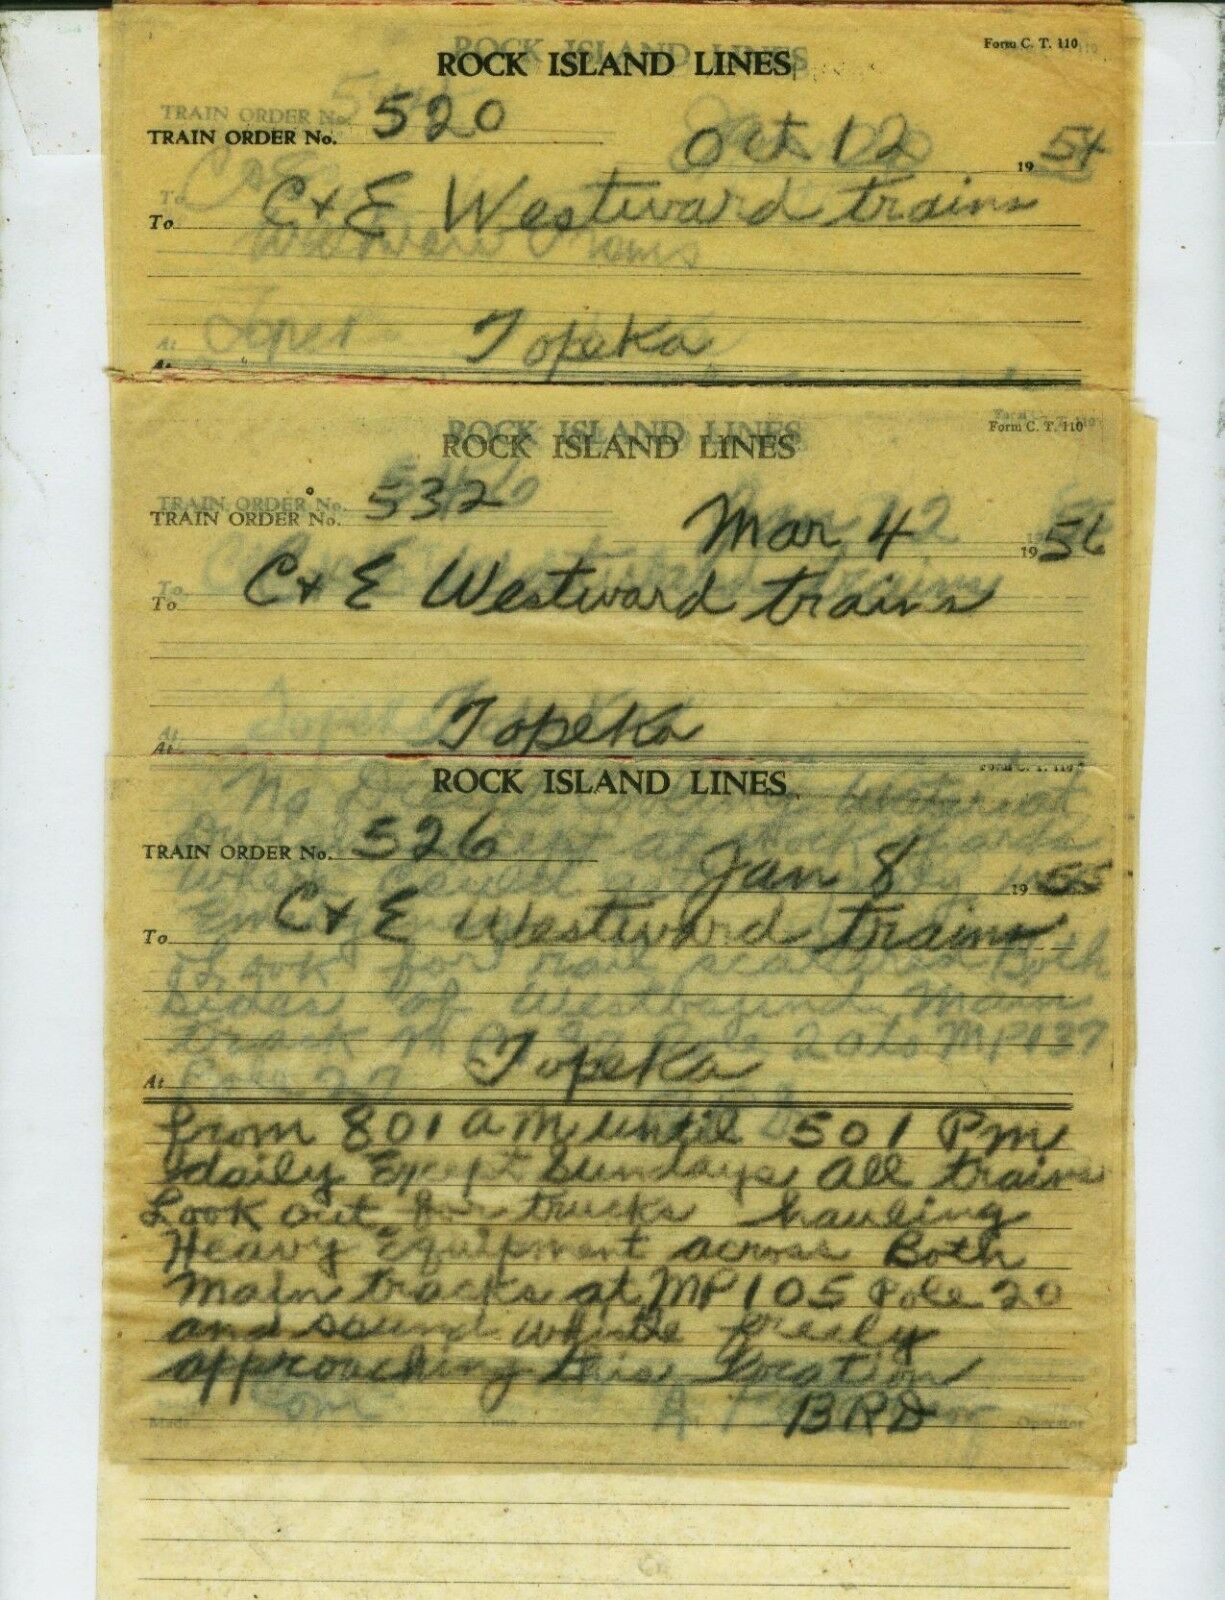 Form C. T. 110
ROCK ISLAND LINES
TRAIN ORDER No. 520
Oct 12 1954
To C & E Westward trains
At Topeka
Form C. T. 110
ROCK ISLAND LINES
TRAIN ORDER No. 532
Mar 4 1956
To C & E Westward trains
At Topeka
Form C. T. 110
ROCK ISLAND LINES
TRAIN ORDER No. 526
Jan 8 1955
To C & E Westward trains
At Topeka
from 801 AM until 501 PM
daily Except Sundays All trains
Look out for trucks hauling
Heavy Equipment across Both
Main tracks at MP 105 Pole 20
and sound whistle freely
approaching this location
BRD
Made Operator